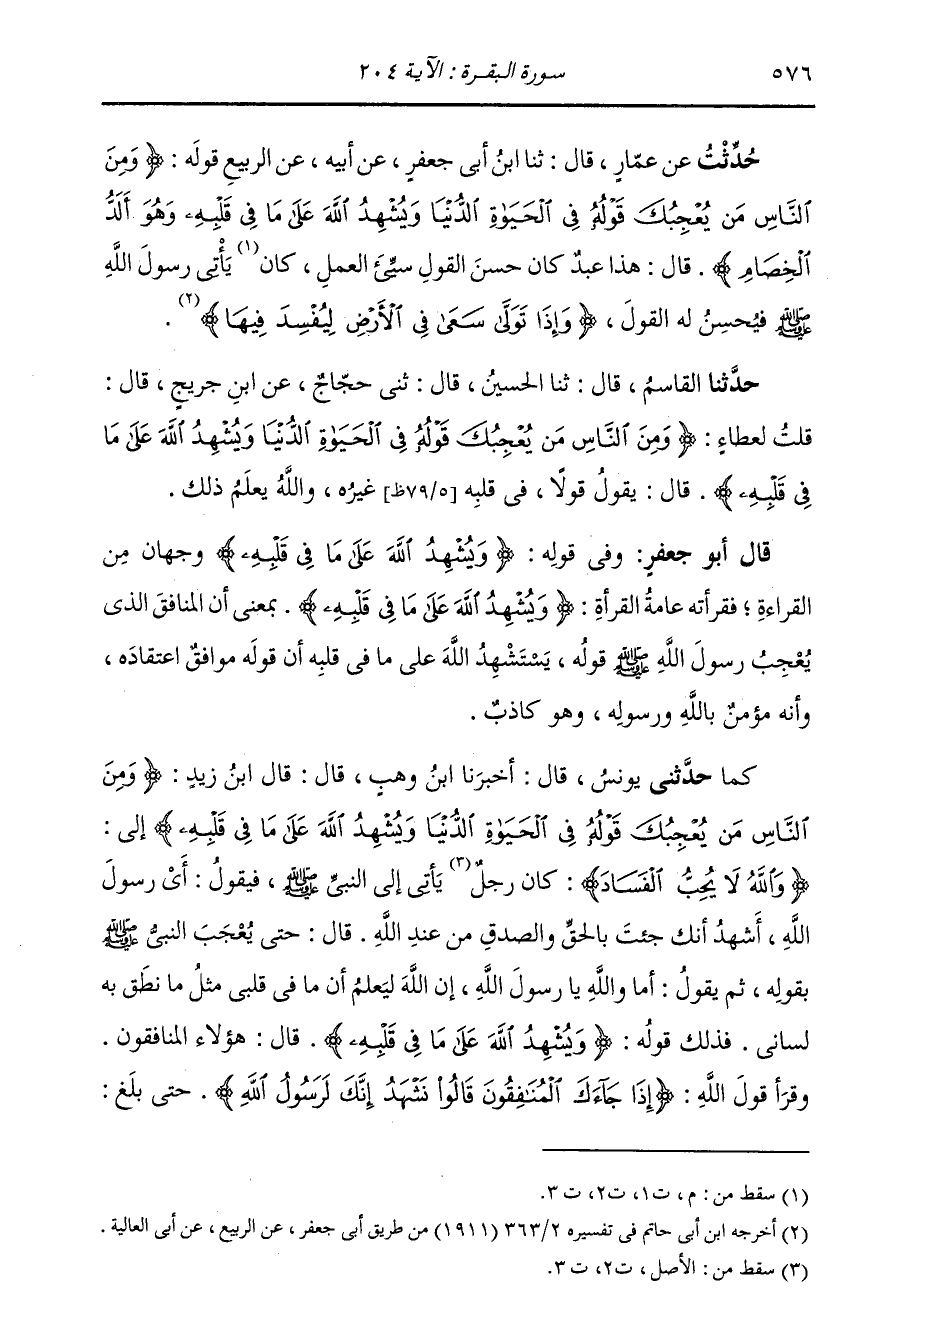 ٥٧٦
سورة البقرة : الآية ٢٠٤
حُدِّثْتُ عن عمّارٍ ، قال : ثنا ابنُ أبى جعفرٍ ، عن أبيه ، عن الربيعِ قولَه : ﴿ وَمِنَ
ٱلنَّاسِ مَن يُعْجِبُكَ قَوْلُهُ فِى ٱلْحَيَوٰةِ ٱلدُّنْيَا وَيُشْهِدُ ٱللَّهَ عَلَىٰ مَا فِى قَلْبِهِۦ وَهُوَ أَلَدُّ
ٱلْخِصَامِ ﴾ . قال : هذا عبدٌ كان حسنَ القولِ سيِّئَ العملِ ، كان(١) يَأْتِى رسولَ اللَّهِ
ﷺ فيُحسِنُ له القولَ ، ﴿ وَإِذَا تَوَلَّىٰ سَعَىٰ فِى ٱلْأَرْضِ لِيُفْسِدَ فِيهَا ﴾(٢) .
حدَّثنا القاسمُ ، قال : ثنا الحسينُ ، قال : ثنى حجّاجٌ ، عن ابنِ جريجٍ ، قال :
قلتُ لعطاءٍ : ﴿ وَمِنَ ٱلنَّاسِ مَن يُعْجِبُكَ قَوْلُهُ فِى ٱلْحَيَوٰةِ ٱلدُّنْيَا وَيُشْهِدُ ٱللَّهَ عَلَىٰ مَا
فِى قَلْبِهِۦ ﴾ . قال : يقولُ قولًا ، فى قلبِه [٧٩/٥ظ] غيرُه ، واللَّهُ يعلَمُ ذلك .
قال أبو جعفرٍ: وفى قولِه : ﴿ وَيُشْهِدُ ٱللَّهَ عَلَىٰ مَا فِى قَلْبِهِۦ ﴾ وجهان مِن
القراءةِ ؛ فقرأته عامةُ القرأةِ : ﴿ وَيُشْهِدُ ٱللَّهَ عَلَىٰ مَا فِى قَلْبِهِۦ ﴾ . بمعنى أن المنافقَ الذى
يُعْجِبُ رسولَ اللَّهِ ﷺ قولُه ، يَسْتَشْهِدُ اللَّهَ على ما فى قلبِه أن قولَه موافقٌ اعتقادَه ،
وأنه مؤمنٌ باللَّهِ ورسولِه ، وهو كاذبٌ .
كما حدَّثنى يونسُ ، قال : أخبرَنا ابنُ وهبٍ ، قال : قال ابنُ زيدٍ : ﴿ وَمِنَ
ٱلنَّاسِ مَن يُعْجِبُكَ قَوْلُهُ فِى ٱلْحَيَوٰةِ ٱلدُّنْيَا وَيُشْهِدُ ٱللَّهَ عَلَىٰ مَا فِى قَلْبِهِۦ ﴾ إلى :
﴿ وَٱللَّهُ لَا يُحِبُّ ٱلْفَسَادَ ﴾ : كان رجلٌ(٣) يَأتى إلى النبىِّ ﷺ ، فيقولُ : أَىْ رسولَ
اللَّهِ ، أَشهدُ أنك جئتَ بالحقِّ والصدقِ من عندِ اللَّهِ . قال : حتى يُعْجَبَ النبىُّ ﷺ
بقولِه ، ثم يقولُ : أما واللَّهِ يا رسولَ اللَّهِ ، إن اللَّهَ ليَعلمُ أن ما فى قلبى مثلُ ما نطَق به
لسانى . فذلك قولُه : ﴿ وَيُشْهِدُ ٱللَّهَ عَلَىٰ مَا فِى قَلْبِهِۦ ﴾ . قال : هؤلاء المنافقون .
وقرَأ قولَ اللَّهِ : ﴿إِذَا جَآءَكَ ٱلْمُنَٰفِقُونَ قَالُوا۟ نَشْهَدُ إِنَّكَ لَرَسُولُ ٱللَّهِ ﴾ . حتى بلَغ :
(١) سقط من : م ، ت١، ت٢، ت ٣.
(٢) أخرجه ابن أبى حاتم فى تفسيره ٣٦٣/٢ (١٩١١) من طريق أبى جعفر ، عن الربيع ، عن أبى العالية .
(٣) سقط من : الأصل ، ت٢، ت ٣.